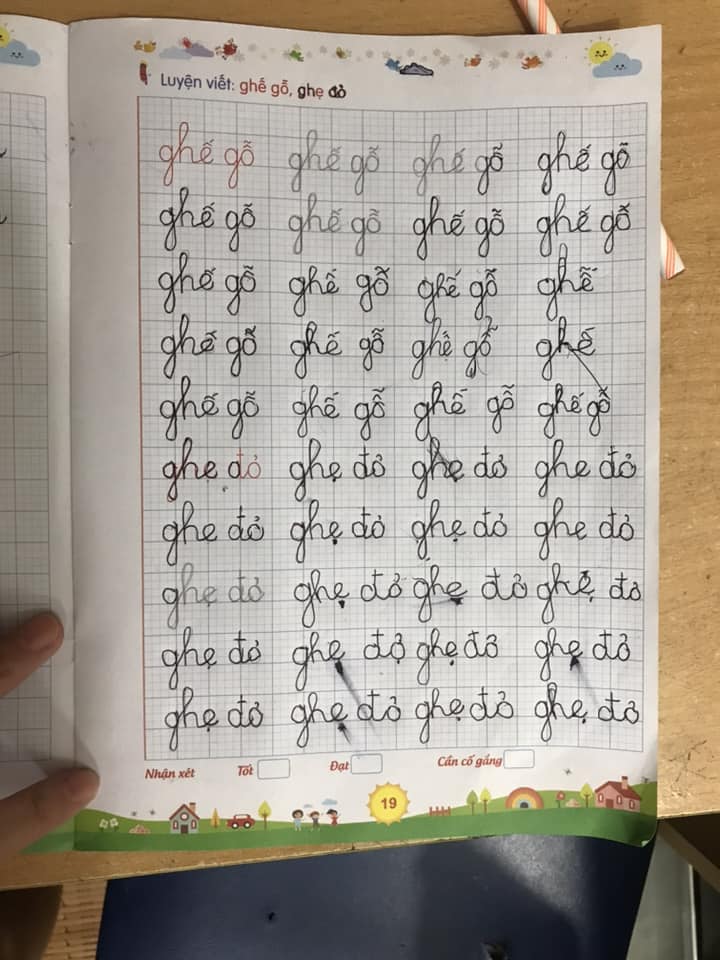 Luyện viết: ghế gỗ, ghẹ đỏ
ghế gỗ ghế gỗ ghế gỗ ghế gỗ
ghế gỗ ghế gỗ ghế gỗ ghế gỗ
ghế gỗ ghế gỗ ghế gỗ ghễ
ghế gỗ ghế gỗ ghế gỗ ghế
ghế gỗ ghế gỗ ghế gỗ ghế gỗ
ghẹ đỏ ghẹ đỏ ghẹ đỏ ghe đỏ
ghẹ đỏ ghẹ đỏ ghẹ đỏ ghe đỏ
ghẹ đỏ ghẹ đỏ ghẹ đỏ ghẹ đỏ
ghẹ đỏ ghẹ đỏ ghẹ đỏ ghẹ đỏ
ghẹ đỏ ghẹ đỏ ghẹ đỏ ghẹ đỏ
Nhận xét Tốt Đạt Cần cố gắng
19